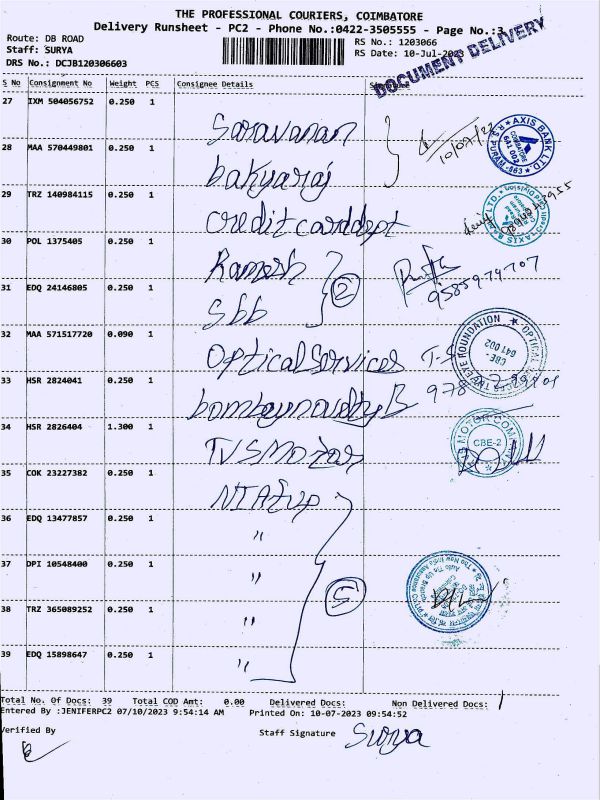 THE PROFESSIONAL COURIERS, COIMBATORE
Delivery Runsheet - PC2 - Phone No.:0422-3505555 - Page No.:3
Route: DB ROAD
Staff: SURYA
DRS No.: DCJB120306603
RS No.: 1203066
RS Date: 10-Jul-2023
DOCUMENT DELIVERY
S No Consignment No Weight PCS Consignee Details
27 IXM 504056752 0.250 1 Saravanan
10/07/23
AXIS BANK LTD.
R.S. PURAM
COIMBATORE
641 002
28 MAA 570449801 0.250 1 bakyaraj
29 TRZ 140984115 0.250 1 credit card dept
AXIS BANK LTD.
30 POL 1375405 0.250 1 Ramesh
2
9585974707
31 EDQ 24146805 0.250 1 Sbb
32 MAA 571517720 0.090 1 Optical Services
EYE FOUNDATION OPTICAL
CBE-
641 002
33 HSR 2824041 0.250 1
34 HSR 2826404 1.300 1 TVS Motor
MOTOR COM
CBE-2
35 COK 23227382 0.250 1 NIA
36 EDQ 13477857 0.250 1 "
37 DPI 10548400 0.250 1 "
5
38 TRZ 365089252 0.250 1 "
39 EDQ 15898647 0.250 1 "
Total No. Of Docs: 39 Total COD Amt: 0.00 Delivered Docs: Non Delivered Docs: 1
Entered By :JENIFERPC2 07/10/2023 9:54:14 AM Printed On: 10-07-2023 09:54:52
Verified By
Staff Signature Surya